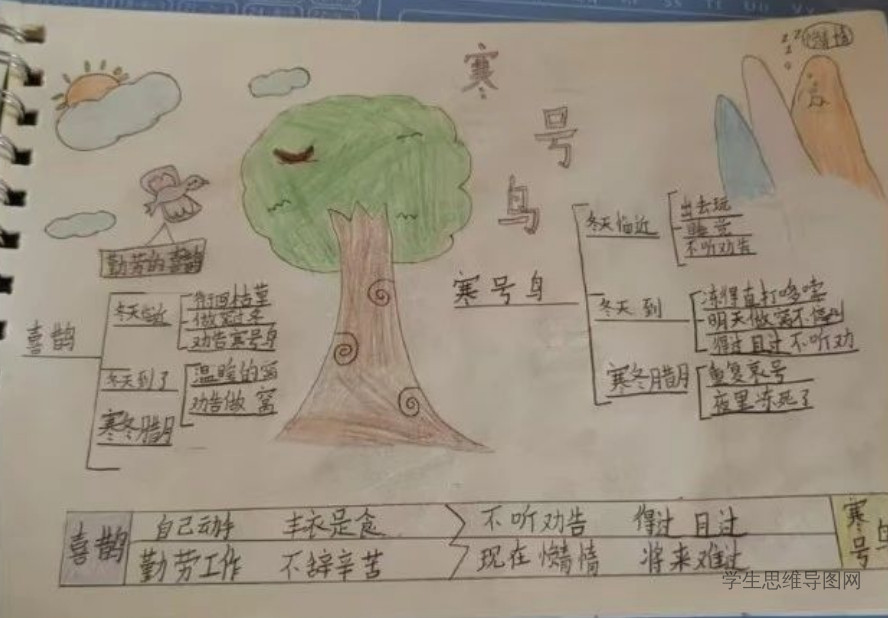 寒
号
鸟
勤劳的喜鹊
喜鹊
冬天临近
衔回枯草
做窝过冬
劝告寒号鸟
冬天到了
温暖的窝
劝告做窝
寒冬腊月
寒号鸟
冬天临近
出去玩
睡觉
不听劝告
冬天到
冻得直打哆嗦
明天做窝
得过且过不听劝
寒冬腊月
重复哀号
夜里冻死了
喜鹊
自己动手 丰衣足食
勤劳工作 不辞辛苦
不听劝告 得过且过
现在懒惰 将来难过
寒号鸟
学生思维导图网